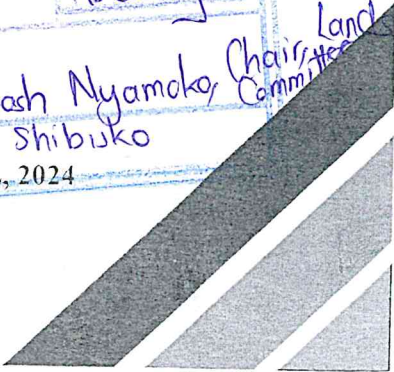 Lands
ash Nyamoko, Chair, Committee
Shibuko
, 2024